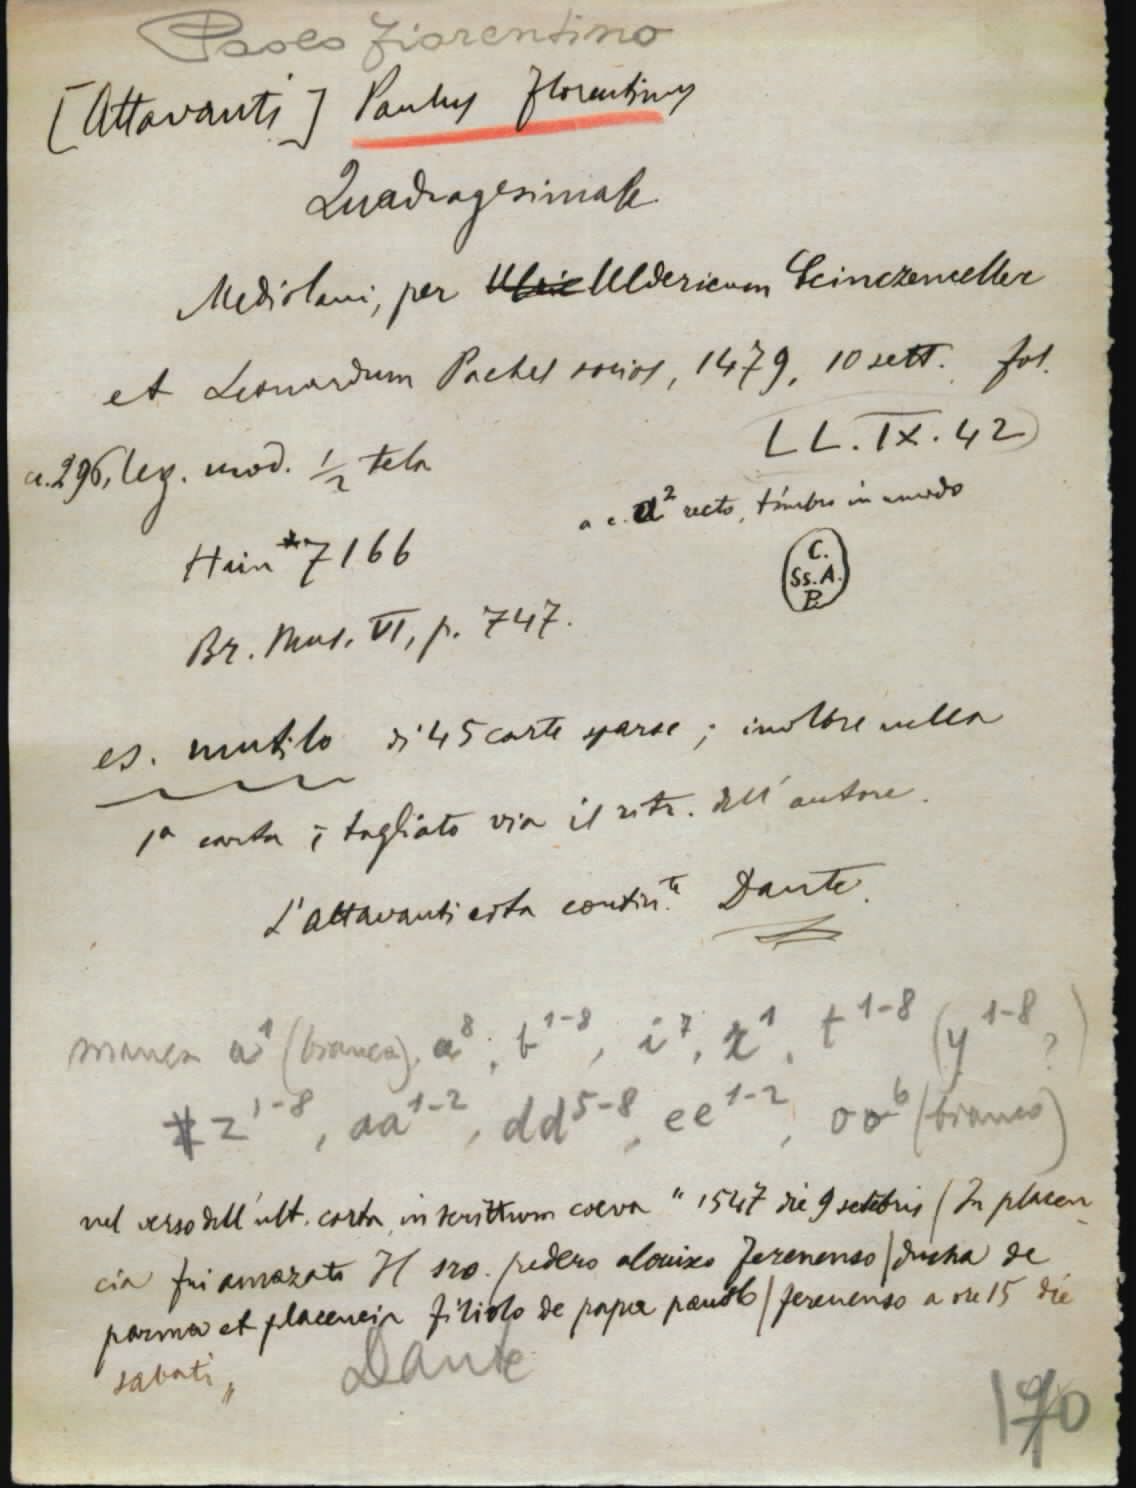 Paolo Fiorentino
[Attavanti] Paulus Florentinus
Quadragesimale
Mediolani, per Ulric Uldericum Scinczenceller
et Leonardum Pachel socios, 1479, 10 sett. fol.
LL.IX.42
c. 296, leg. mod. 1/2 tela
a c. a² recto, timbro in modo
C.
Ss. A.
P.
Hain *7166
Br. Mus. VI, p. 747.
es. mutilo di 45 carte sparse; inoltre nella
1ª carta è tagliato via il ritr. dell'autore.
L'Attavanti cita contin.te Dante.
manca a¹ (bianca), a⁸, b¹⁻⁸, i⁷, r¹, t¹⁻⁸ (y¹⁻⁸ ?)
z¹⁻⁸, aa¹⁻², dd⁵⁻⁸, ee¹⁻², oo⁶ (bianco)
nel verso dell'ult. carta, inscrittiom coeva "1547 die 9 setebris / In placen-
cia fu amazato Il sro. pedero alouixo ferenenso / ducha de
parma et placencia filiolo de papa paulo / ferenenso a ore 15 die
sabati"
Dante
190